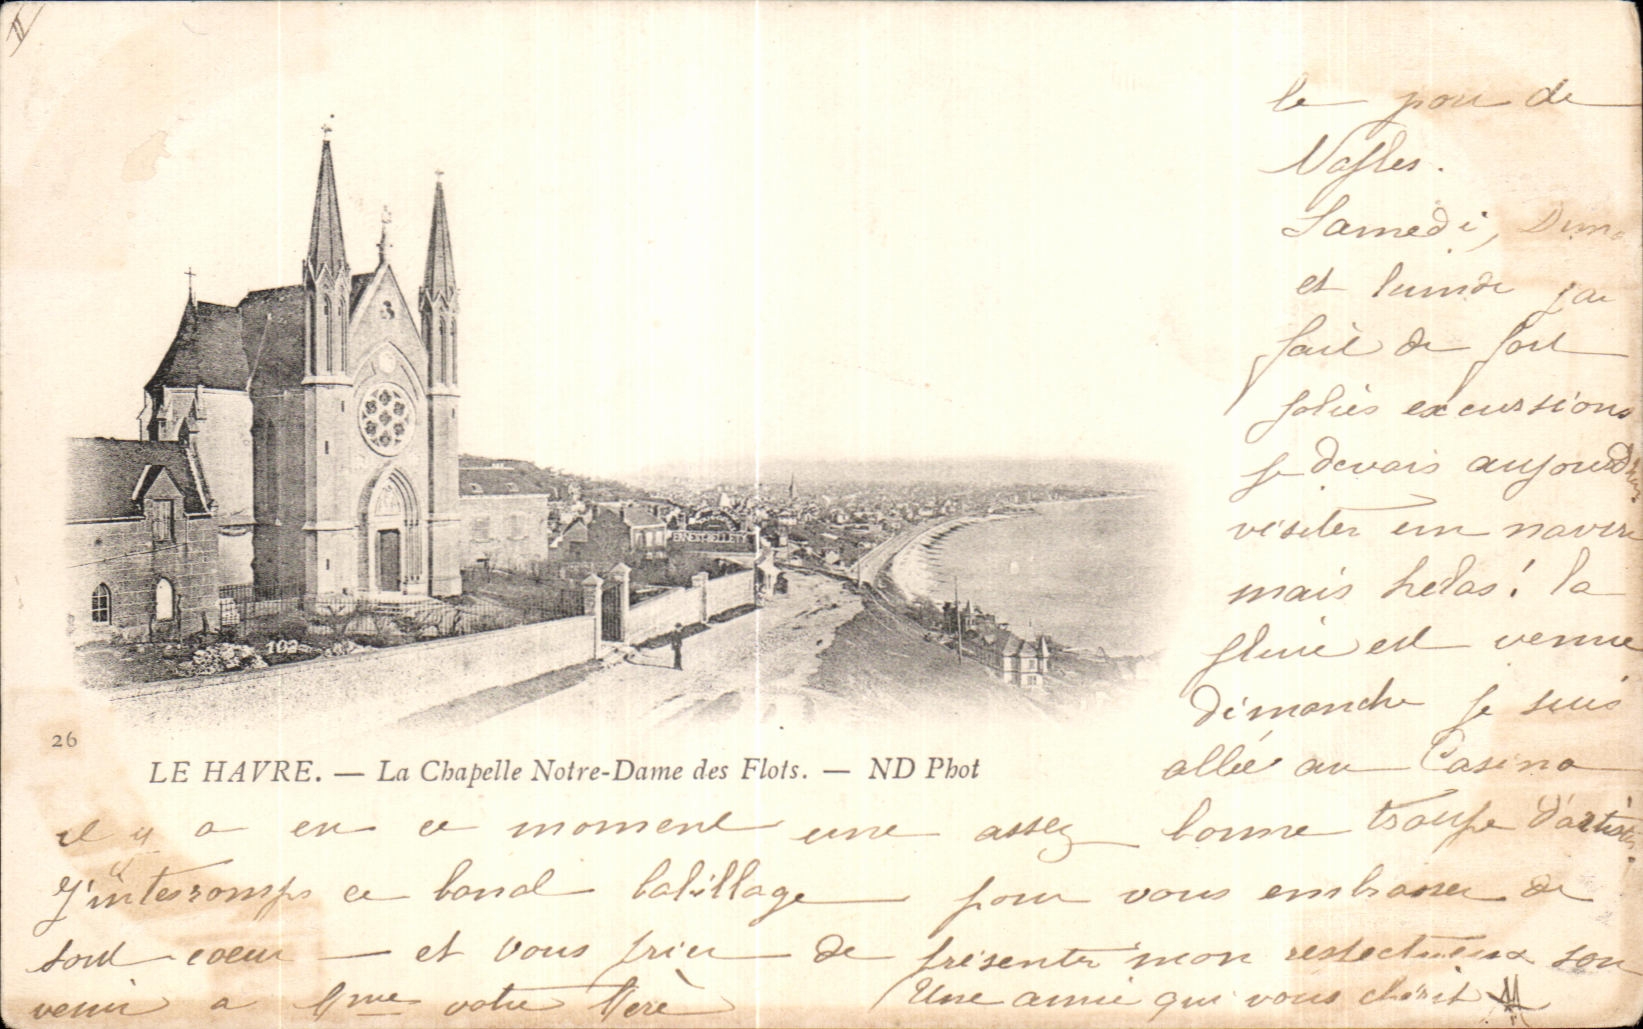 II
le pour de
Naples.
Samedi, Dim
et lundi j'ai
fait de fort
jolies excursions
je devais aujourd'hui
visiter un navire
mais helas! la
pluie est venue
dimanche je suis
allée au Casino
ERNEST BELLETY
102
26
LE HAVRE. — La Chapelle Notre-Dame des Flots. — ND Phot
il y a en ce moment une assez bonne troupe d'artistes.
J'interromps ce banal babillage pour vous embrasser de
tout coeur — et vous prier de présenter mon respectueux sou
venir a Mme votre Mère Une amie qui vous chérit M